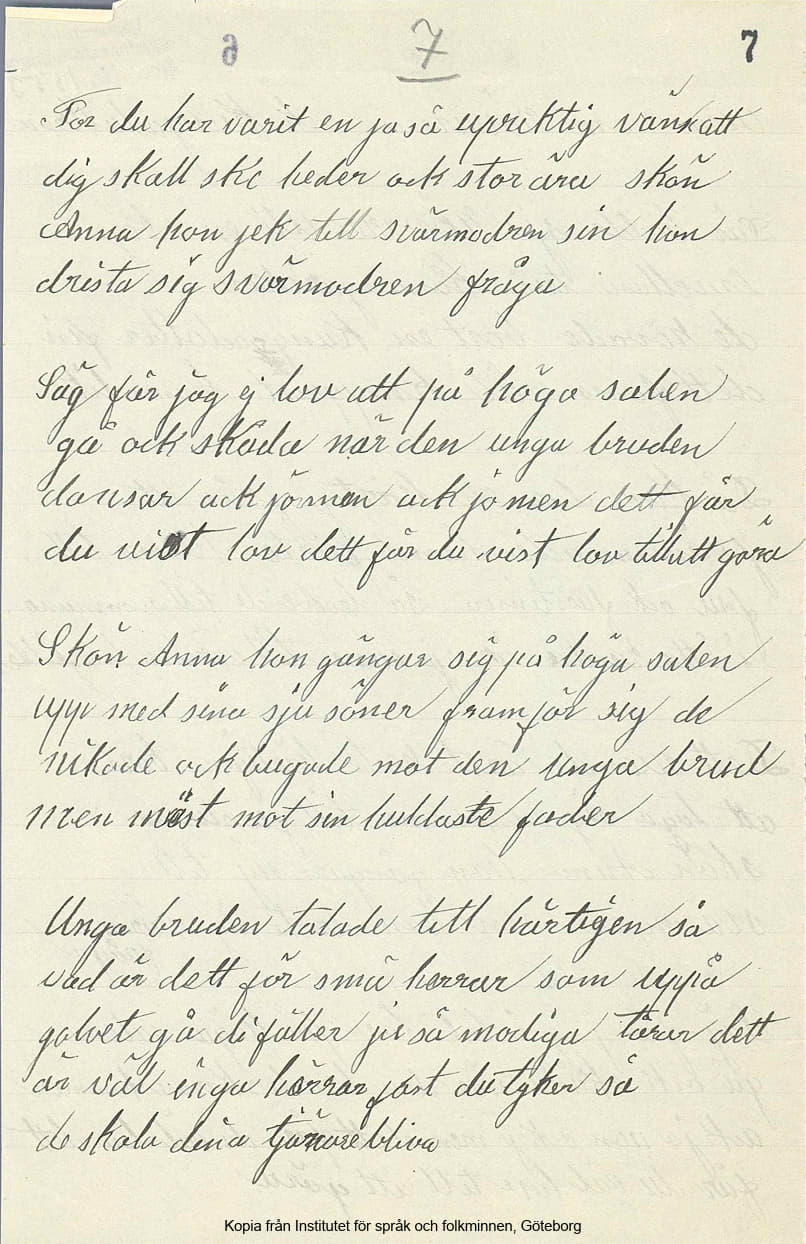 6 7 7
For du har varit en ja så upriktig vän att
dig skall ske heder ock stor ära skön
Anna hon jek till svärmodren sin hon
drista sig svärmodren fråga
Säg får jag ej lov att på höga salen
gå ock skåda när den unga bruden
dansar ack jo men ack jo men dett får
du vist lov dett får du vist lov till att göra
Skön Anna hon gångar sig på höga salen
upp med sina sju söner framför sig de
nikade ock bugade mot den unga brud
men mäst mot sin huldaste fader
Unga bruden talade till härtigen så
vad är dett för små herrar som uppå
golvet gå di fäller ju så modiga tårar dett
är väl inga härrar fast du tyker så
de skola dina tjänare bliva
Kopia från Institutet för språk och folkminnen, Göteborg